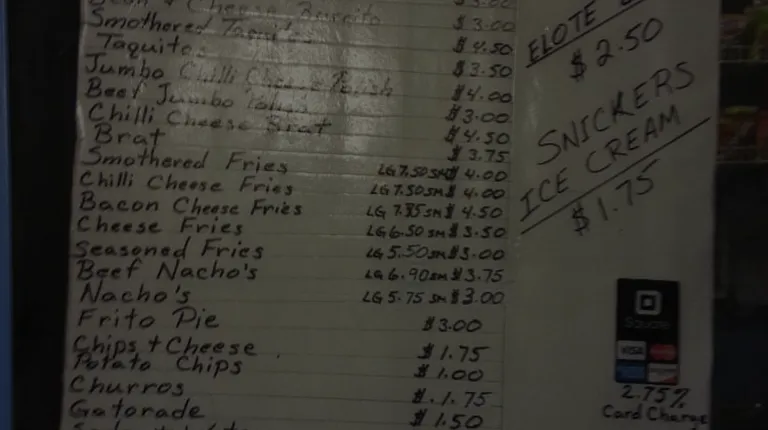 Bean & Cheese Burrito $3.00
Smothered Taquitos $3.00
Taquitos $4.50
Jumbo Chilli Cheese Polish $3.50
Beef Jumbo Polish $4.00
Chilli Cheese Brat $3.00
Brat $4.50
$3.75
Smothered Fries LG 7.50 SM $4.00
Chilli Cheese Fries LG 7.50 SM $4.00
Bacon Cheese Fries LG 7.85 SM $4.50
Cheese Fries LG 6.50 SM $3.50
Seasoned Fries LG 5.50 SM $3.00
Beef Nacho's LG 6.90 SM $3.75
Nacho's LG 5.75 SM $3.00
Frito Pie $3.00
Chips + Cheese $1.75
Potato Chips $1.00
Churros $.1.75
Gatorade $1.50
ELOTE
$2.50
SNICKERS
ICE CREAM
$1.75
Square
VISA
2.75%
Card Charge